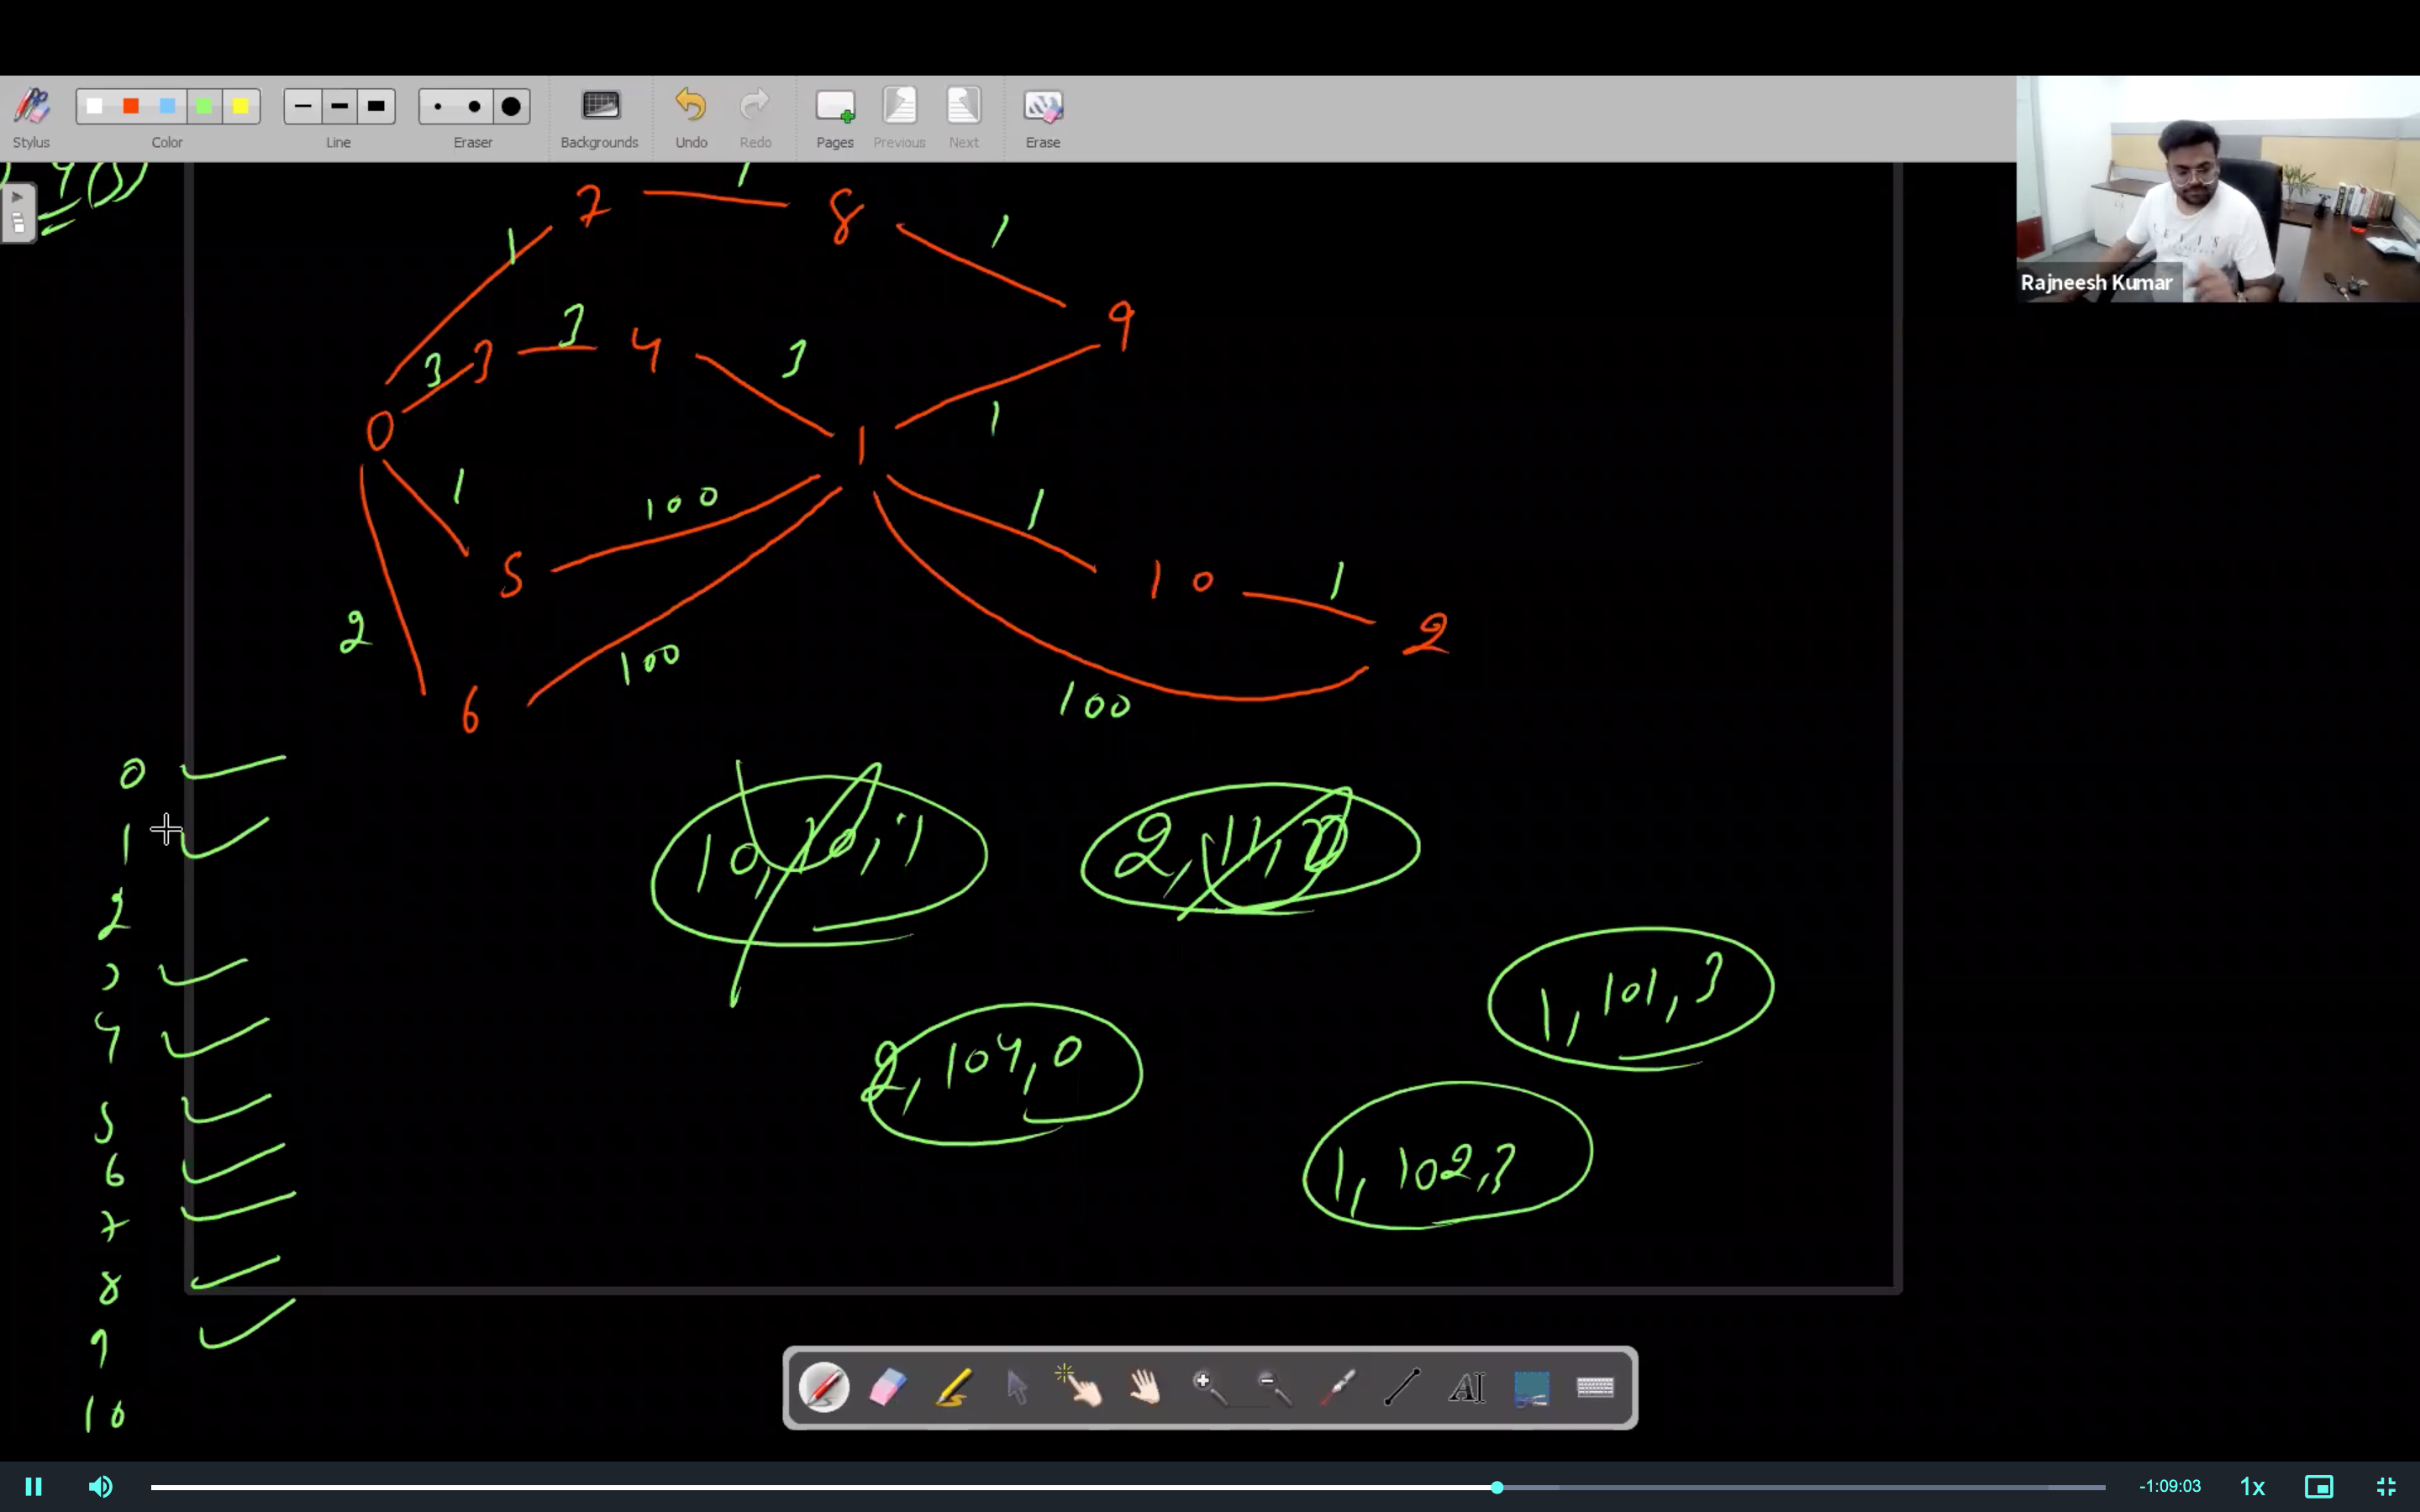 Stylus
Color
Line
Eraser
Backgrounds
Undo
Redo
Pages
Previous
Next
Erase
LEVI'S
Rajneesh Kumar
7
1
8
1
1
9
3
3
3
4
3
0
1
1
1
100
1
5
10
1
2
2
100
6
100
0
1
2
3
4
5
6
7
8
9
10
2, 104, 0
1, 101, 3
1, 102, 3
AI
-1:09:03
1x